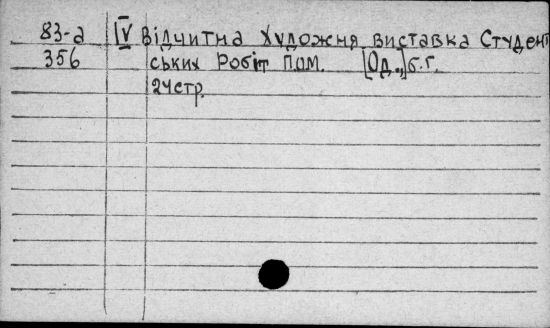 83-д IV Відчитна художня виставка Студент
356 ських робіт ПОМ. [Од.,] б.г.
24 стр.